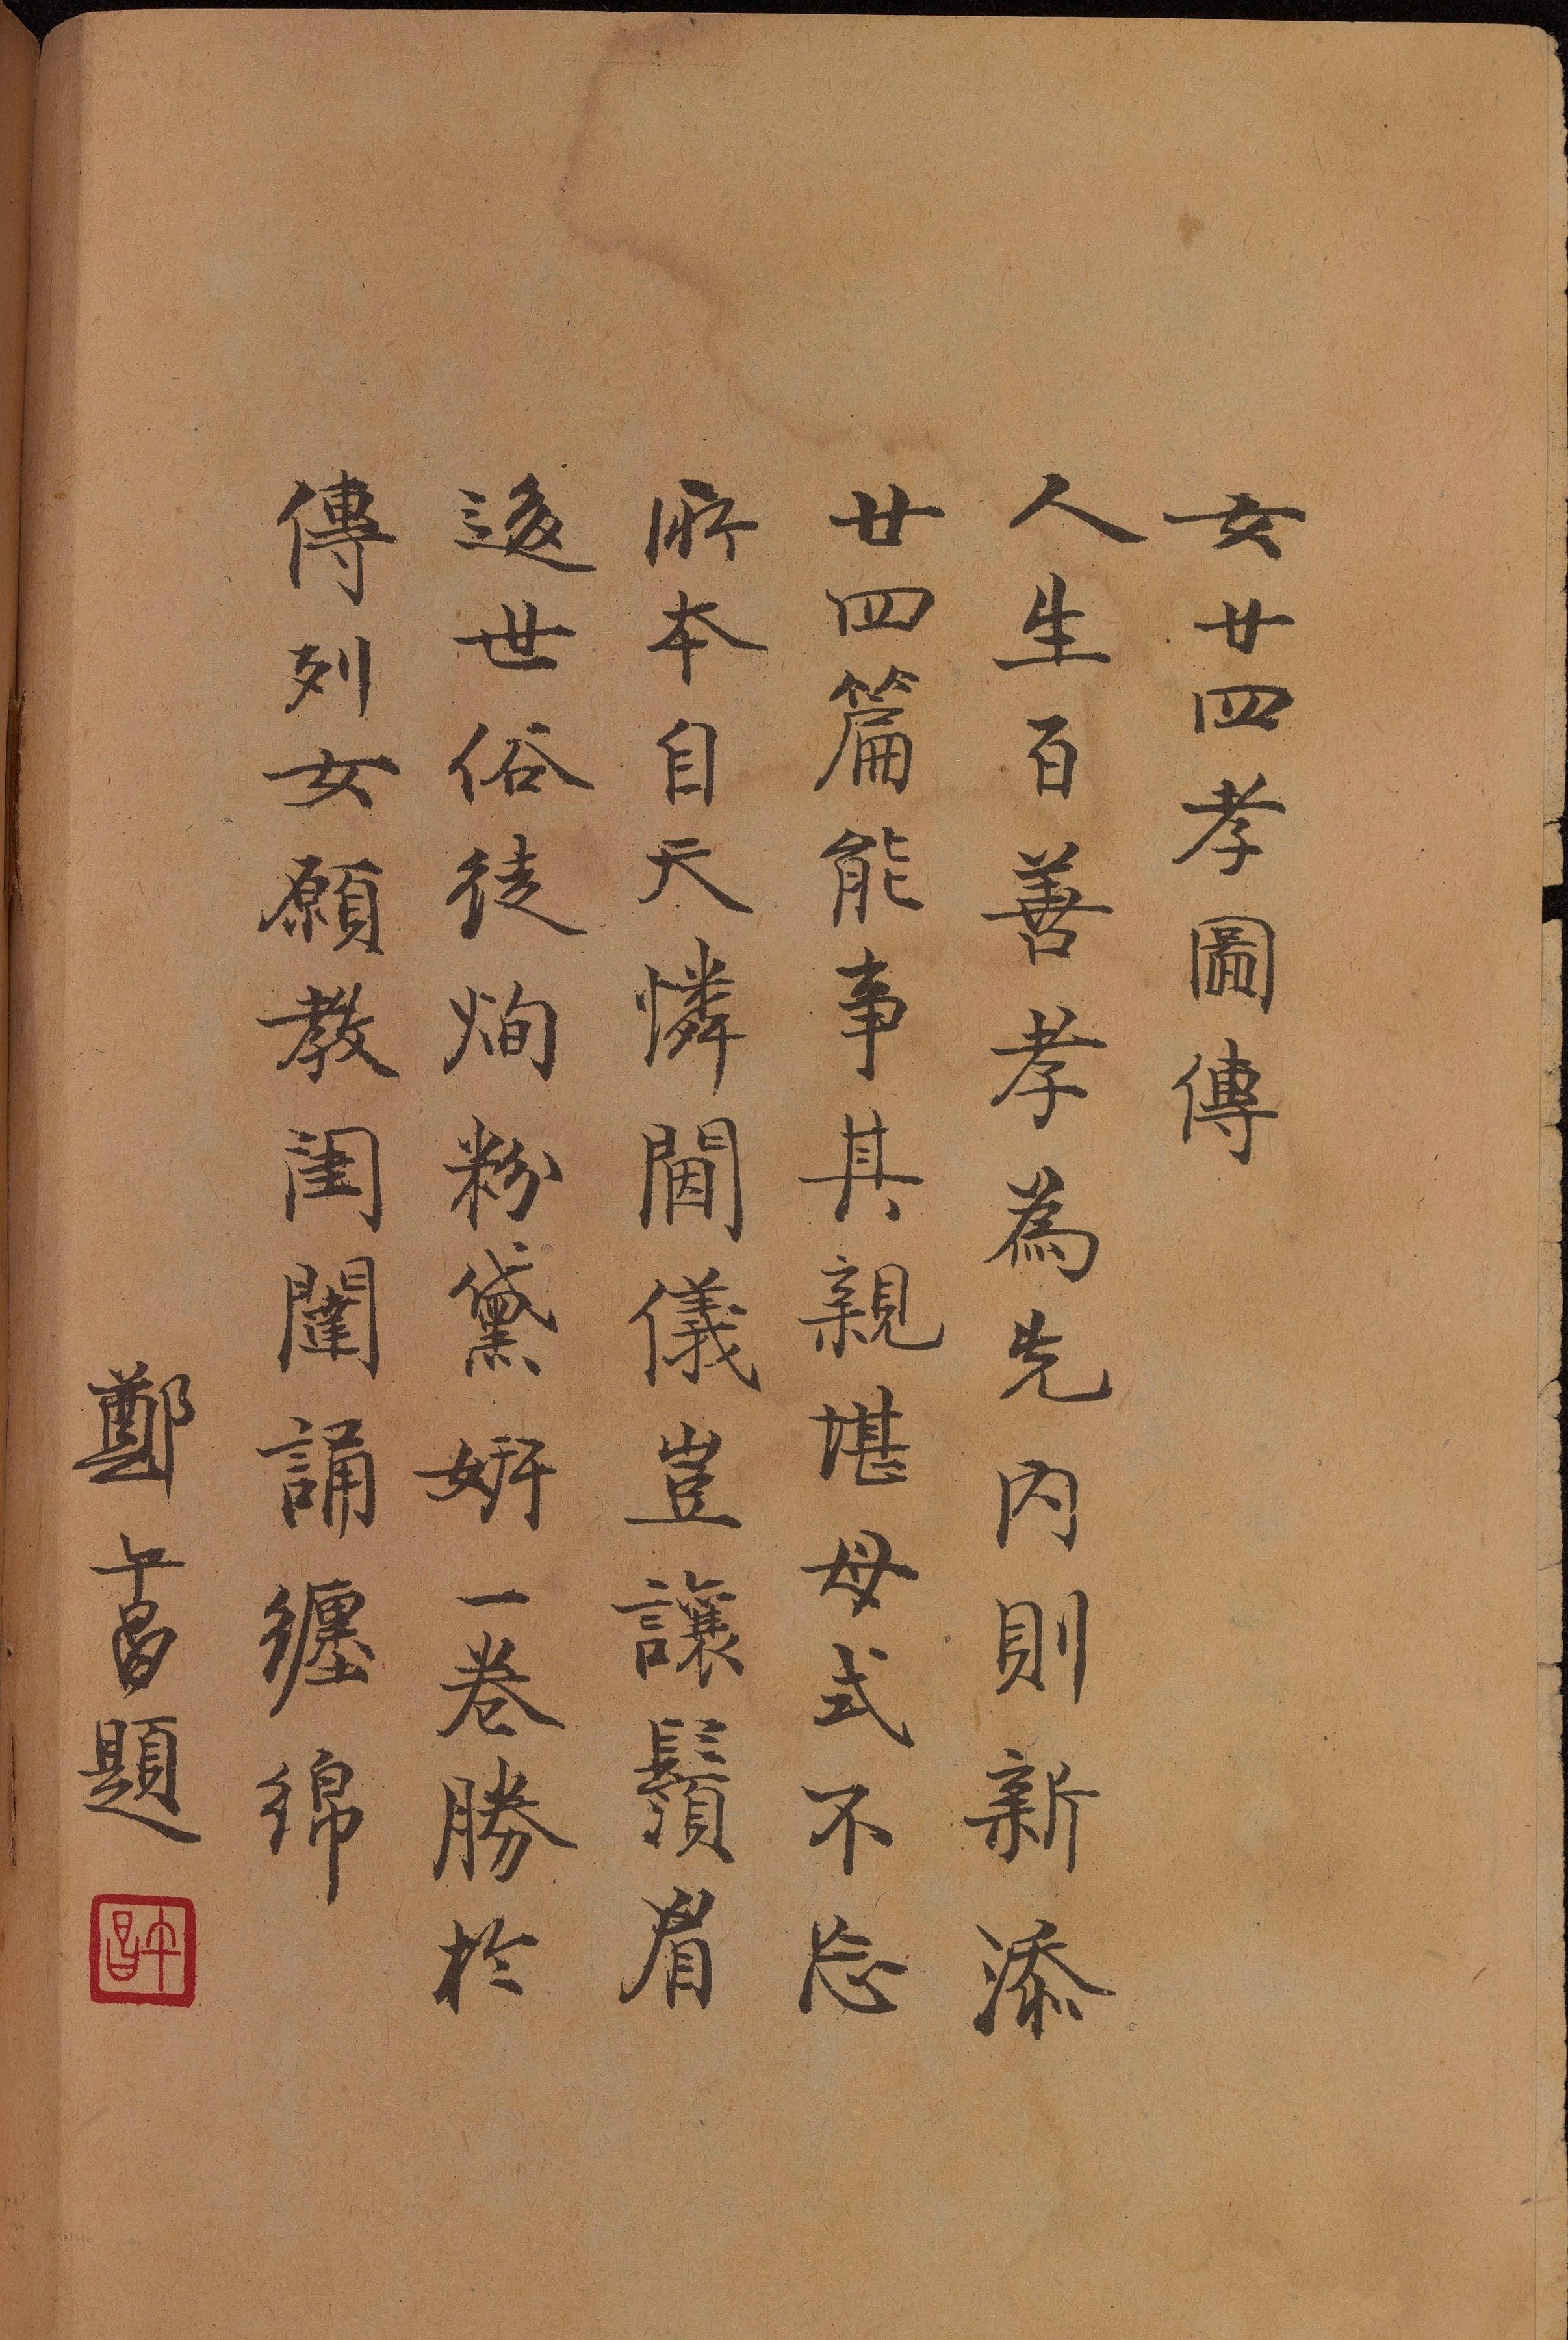 女廿四孝圖傳
人生百善孝為先內則新添
廿四篇能事其親堪母式不忘
所本自天憐閫儀豈讓鬚眉
後世俗徒炯粉黛妍一卷勝於
傳列女願教閨闥誦纏綿
鄭午昌題
午昌